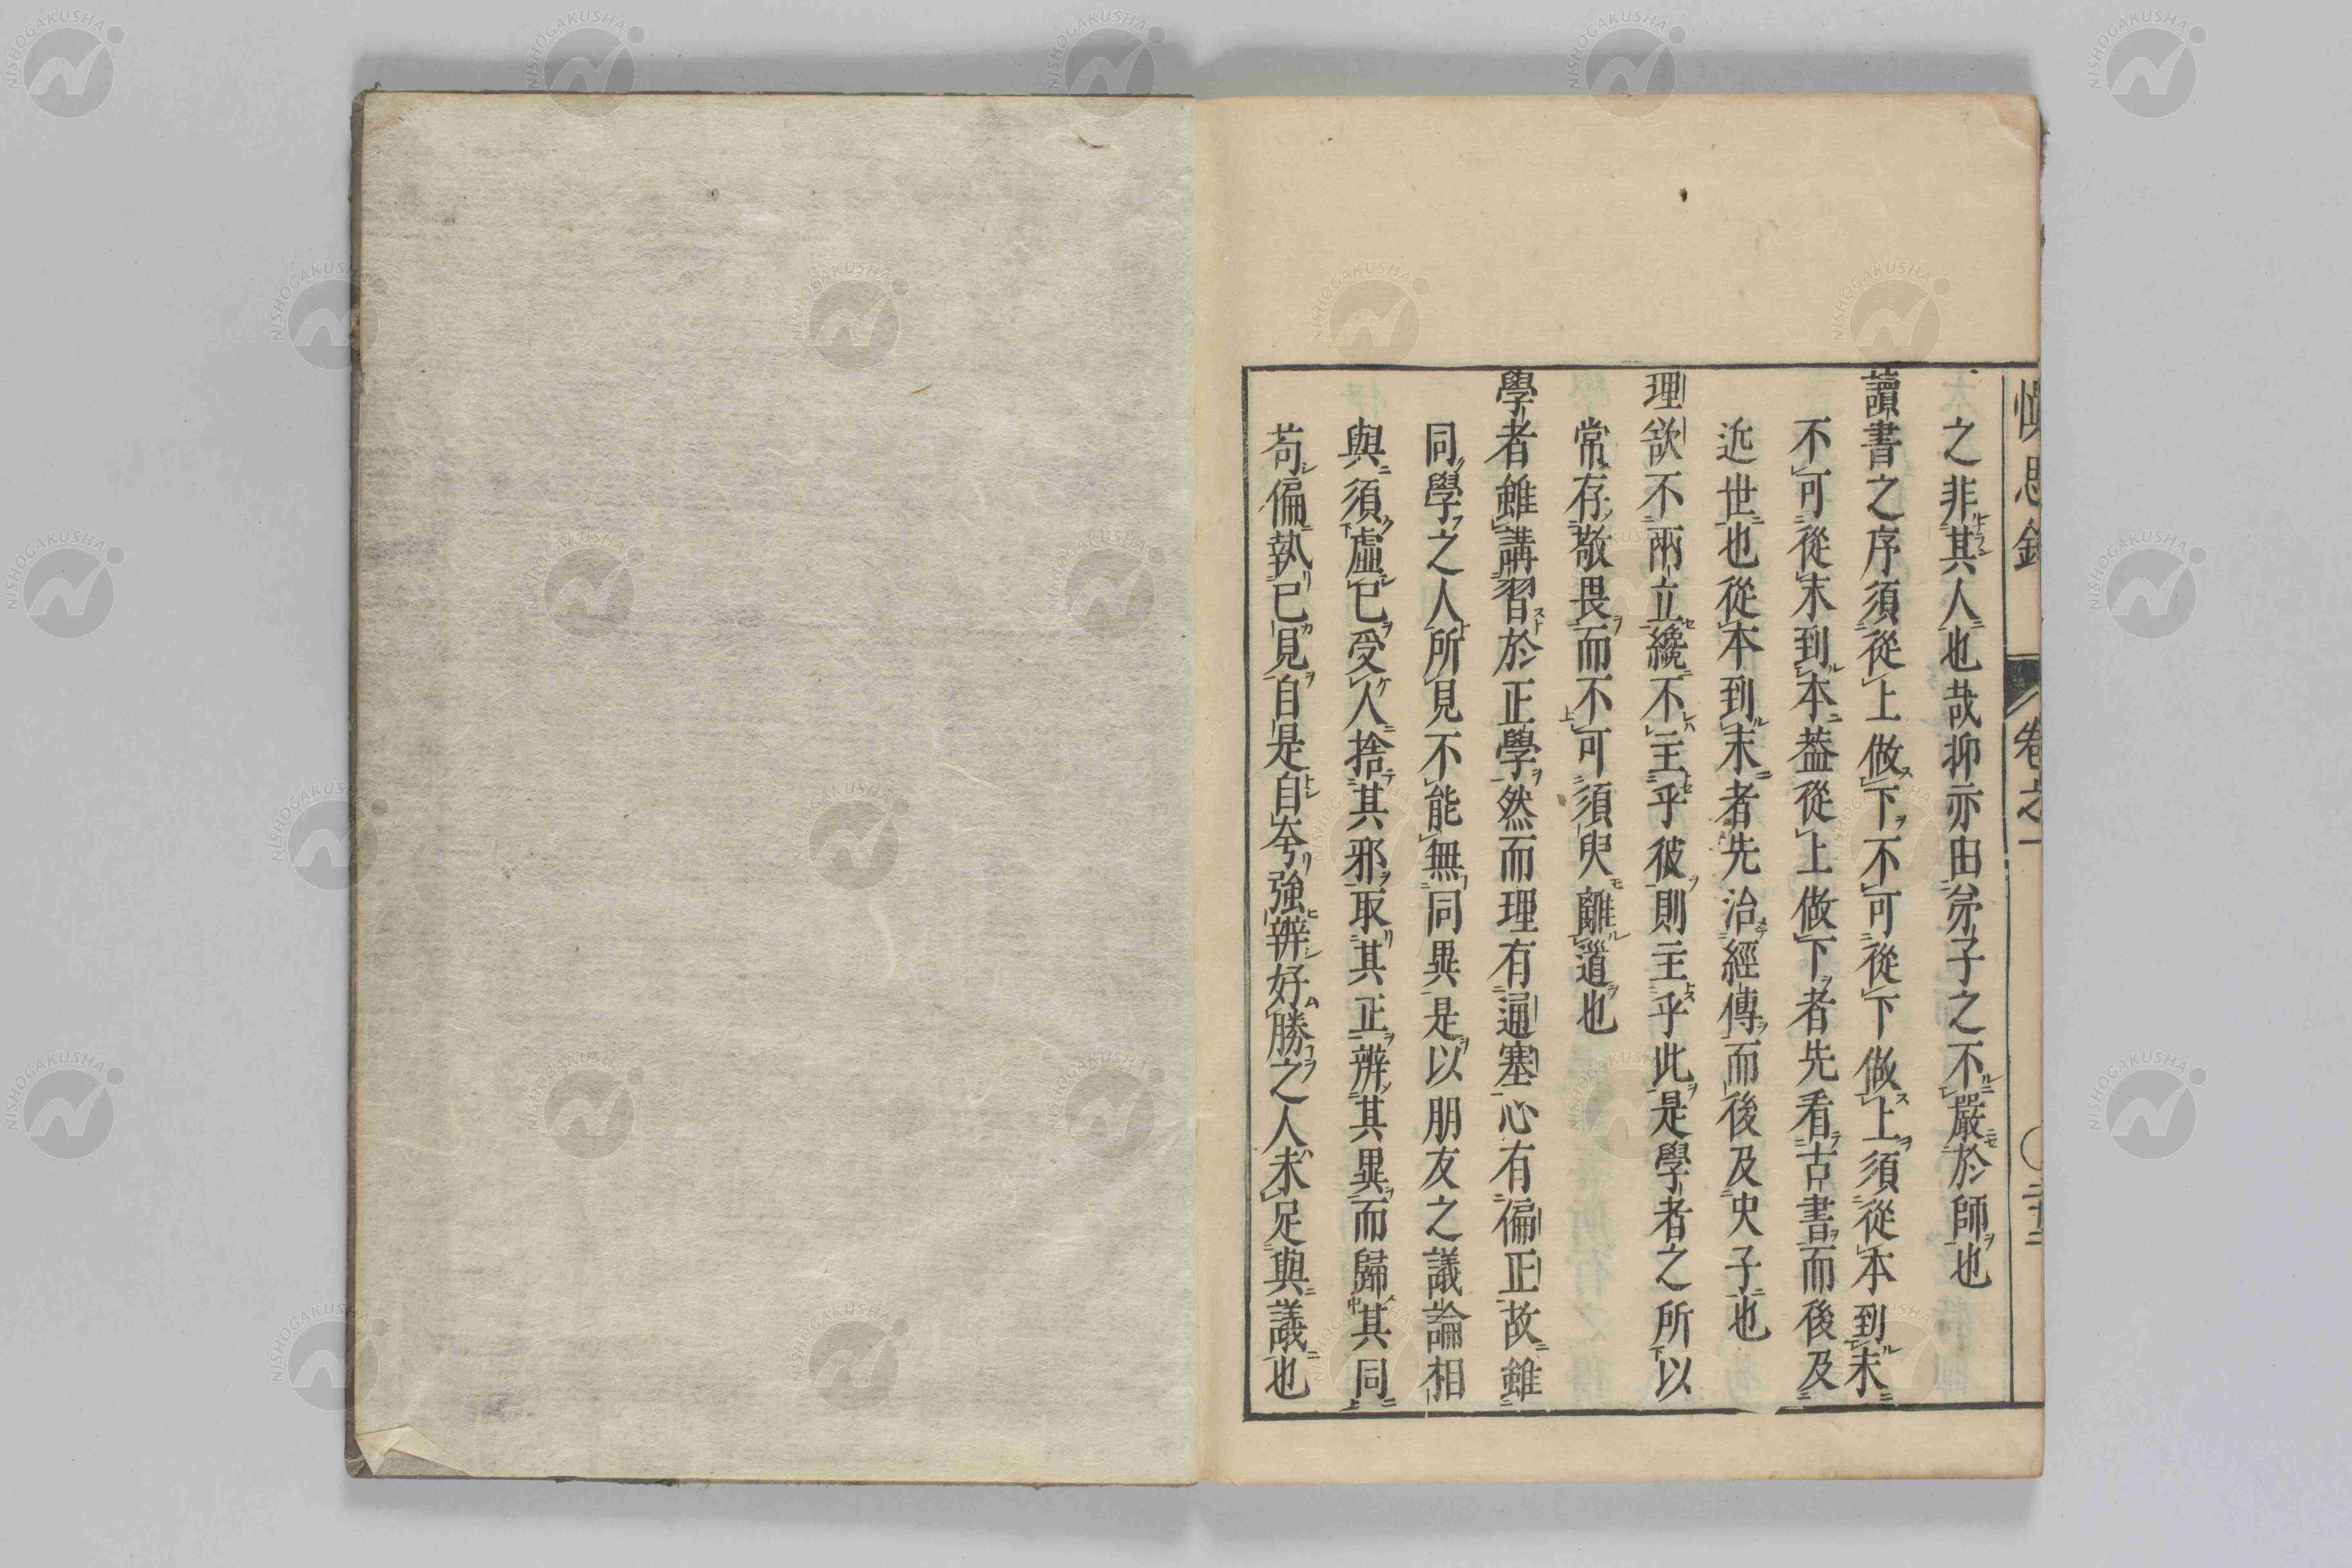 慎思録 卷之一 二十二
之非其人也哉抑亦由弟子之不嚴於師也
讀書之序須從上做下不可從下做上須從本到末
不可從末到本葢從上做下者先看古書而後及
近世也從本到末者先治經傳而後及史子也
理欲不兩立纔不主乎彼則主乎此是學者之所以
常存敬畏而不可須臾離道也
學者雖講習於正學然而理有通塞心有偏正故雖
同學之人所見不能無同異是以朋友之議論相
與須虛己受人捨其邪取其正辨其異而歸其同
苟偏執己見自是自夸強辨好勝之人未足與議也
NISHOGAKUSHA